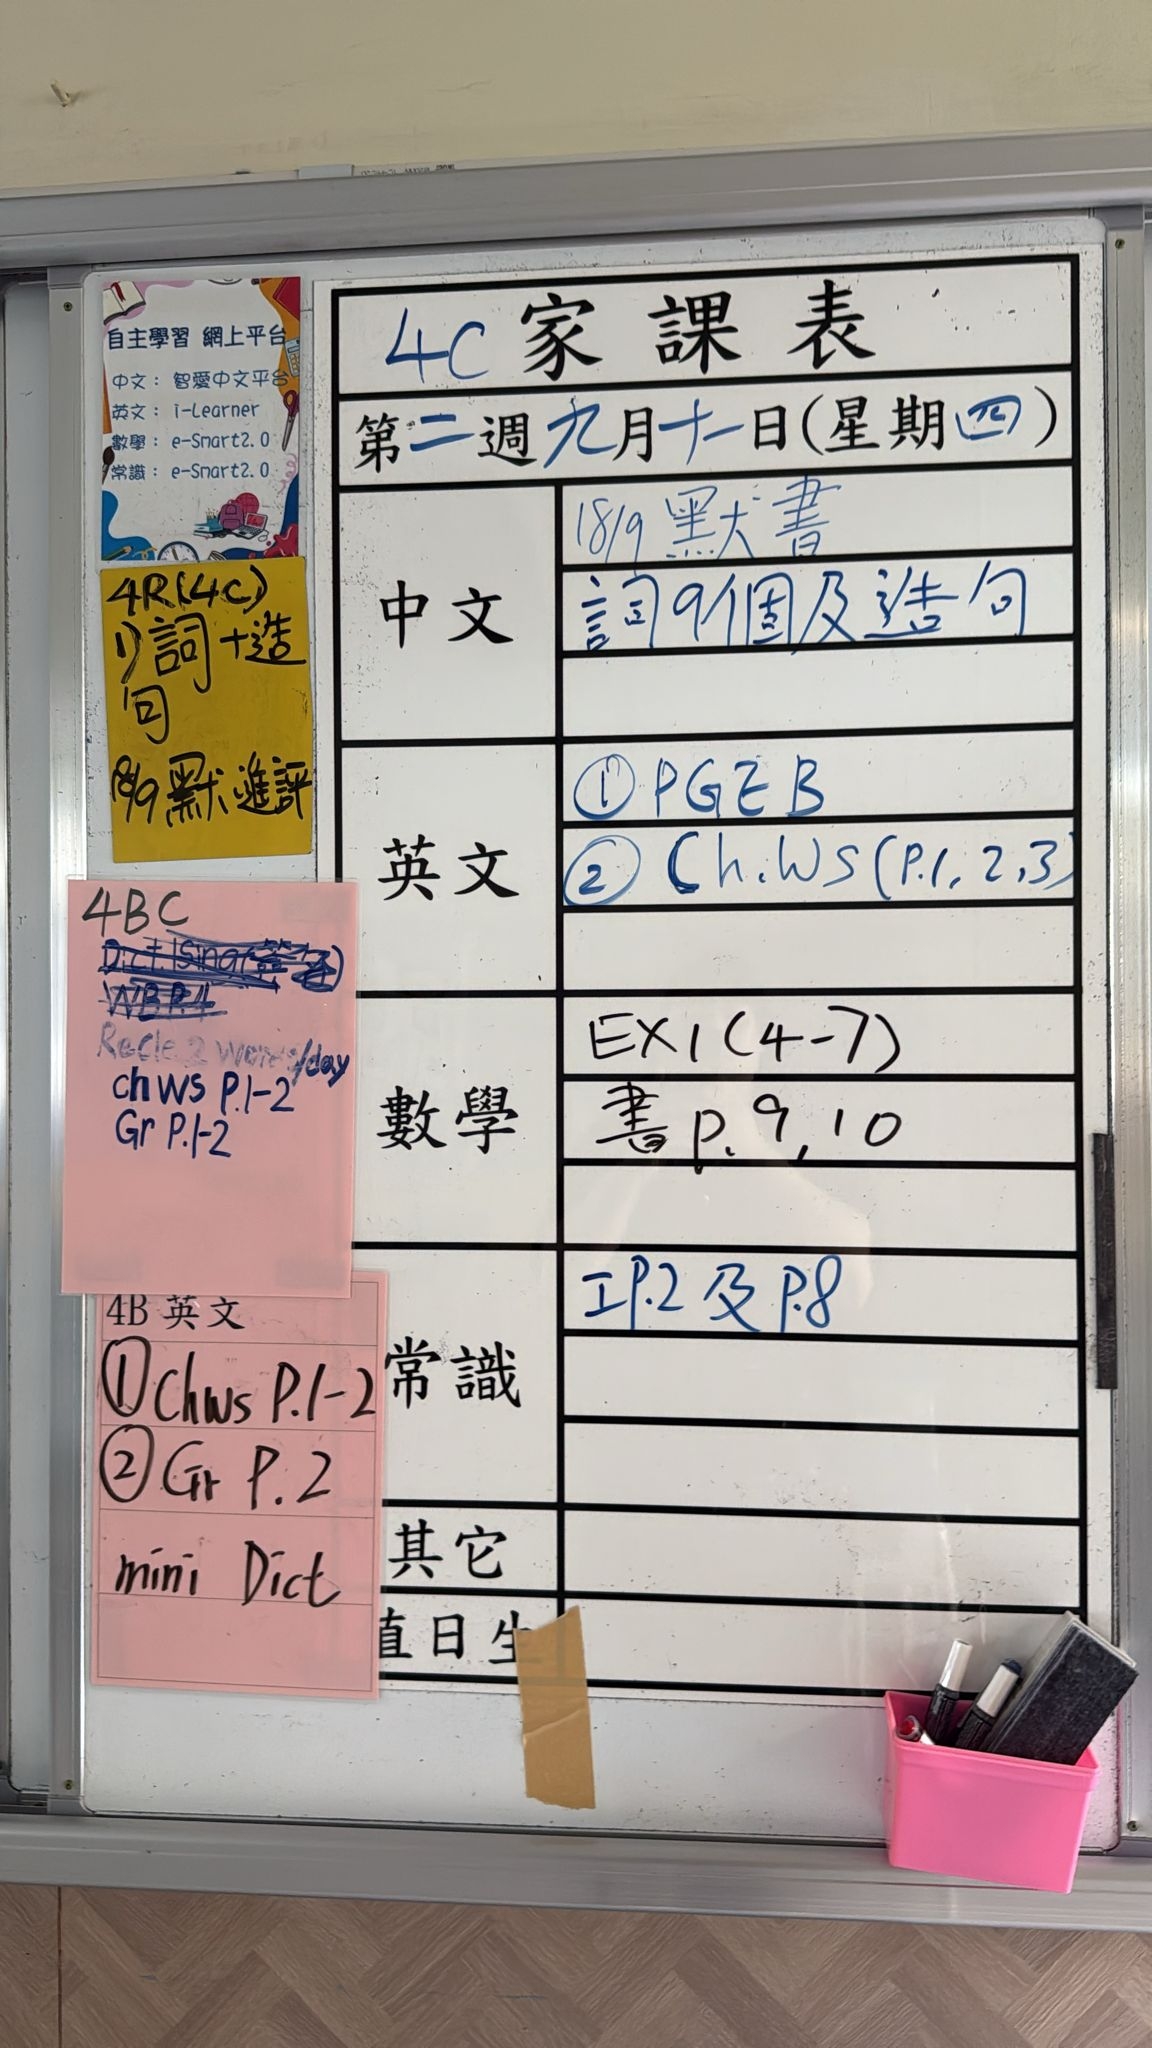 自主學習 網上平台
中文： 智愛中文平台
英文： i-Learner
數學： e-Smart2.0
常識： e-Smart2.0
4R(4C)
1) 詞+造
句
18/9 默進評
4BC
WB P.4
2 words/day
ch WS P.1-2
Gr P.1-2
4B 英文
① Ch ws P.1-2
② Gr P.2
mini Dict
4C 家課表
第二週九月十一日(星期四)
中文
18/9 默書
詞9個及造句
英文
① PGEB
② Ch.WS(P.1,2,3)
數學
EX1(4-7)
書 p.9,10
常識
工P.2 及 P.8
其它
直日生